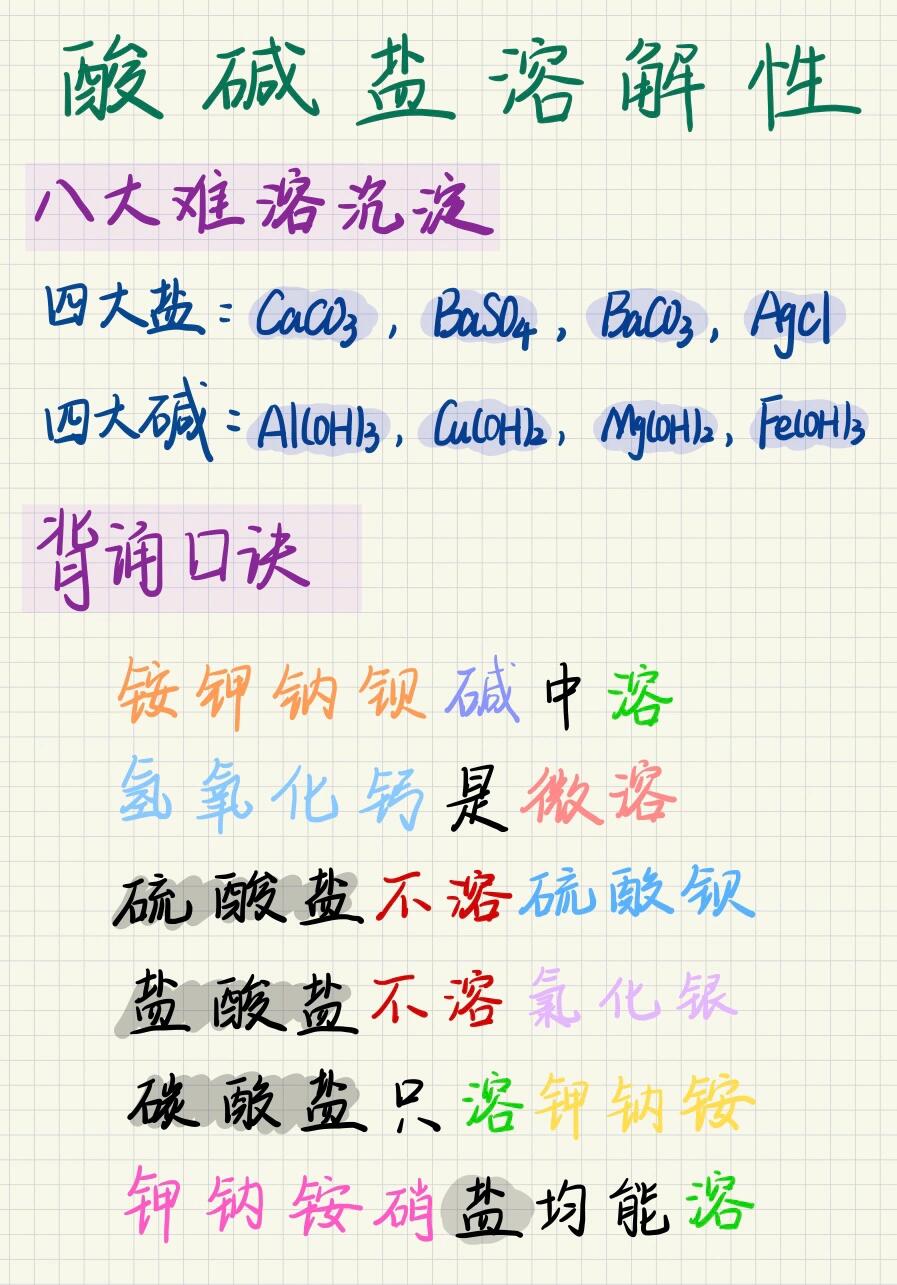 酸碱盐溶解性
八大难溶沉淀
四大盐：CaCO₃，BaSO₄，BaCO₃，AgCl
四大碱：Al(OH)₃，Cu(OH)₂，Mg(OH)₂，Fe(OH)₃
背诵口诀
铵钾钠钡碱中溶
氢氧化钙是微溶
硫酸盐不溶硫酸钡
盐酸盐不溶氯化银
碳酸盐只溶钾钠铵
钾钠铵硝盐均能溶